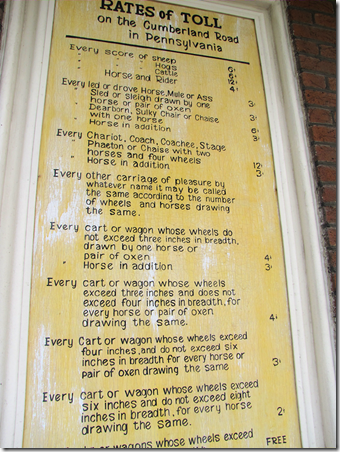 RATES OF TOLL
on the Cumberland Road
in Pennsylvania
Every score of sheep 6¢
" " " Hogs 6¢
" " " Cattle 12¢
Horse and Rider 4¢
Every led or drove Horse, Mule or Ass 3¢
" Sled or sleigh drawn by one
horse or pair of oxen 3¢
" Dearborn, Sulky Chair or Chaise
with one horse 6¢
" Horse in addition 3¢
Every Chariot, Coach, Coachee, Stage
Phaeton or Chaise with two
horses and four wheels 12¢
" Horse in addition 3¢
Every other carriage of pleasure by
whatever name it may be called
the same according to the number
of wheels and horses drawing
the same.
Every cart or wagon whose wheels do
not exceed three inches in breadth,
drawn by one horse or
pair of oxen 4¢
" Horse in addition 3¢
Every cart or wagon whose wheels
exceed three inches and does not
exceed four inches in breadth, for
every horse or pair of oxen
drawing the same. 4¢
Every Cart or wagon whose wheels exceed
four inches, and do not exceed six
inches in breadth for every horse or
pair of oxen drawing the same 3¢
Every cart or wagon whose wheels exceed
six inches and do not exceed eight
inches in breadth, for every horse
drawing the same. 2¢
or wagons whose wheels exceed FREE